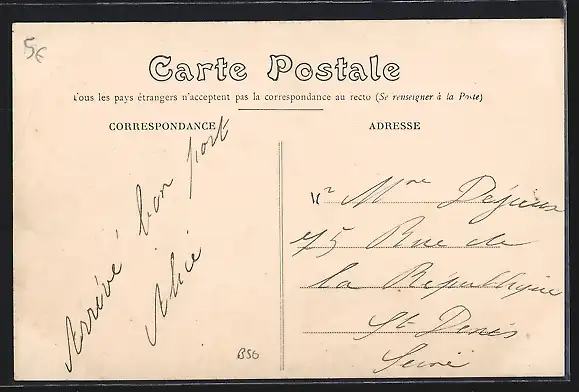 5€
Carte Postale
Tous les pays étrangers n'acceptent pas la correspondance au recto (Se renseigner à la Poste)
CORRESPONDANCE
Arrivé bon port
Alice
B50
ADRESSE
Mme
75 Rue de
la République
St Denis
Seine